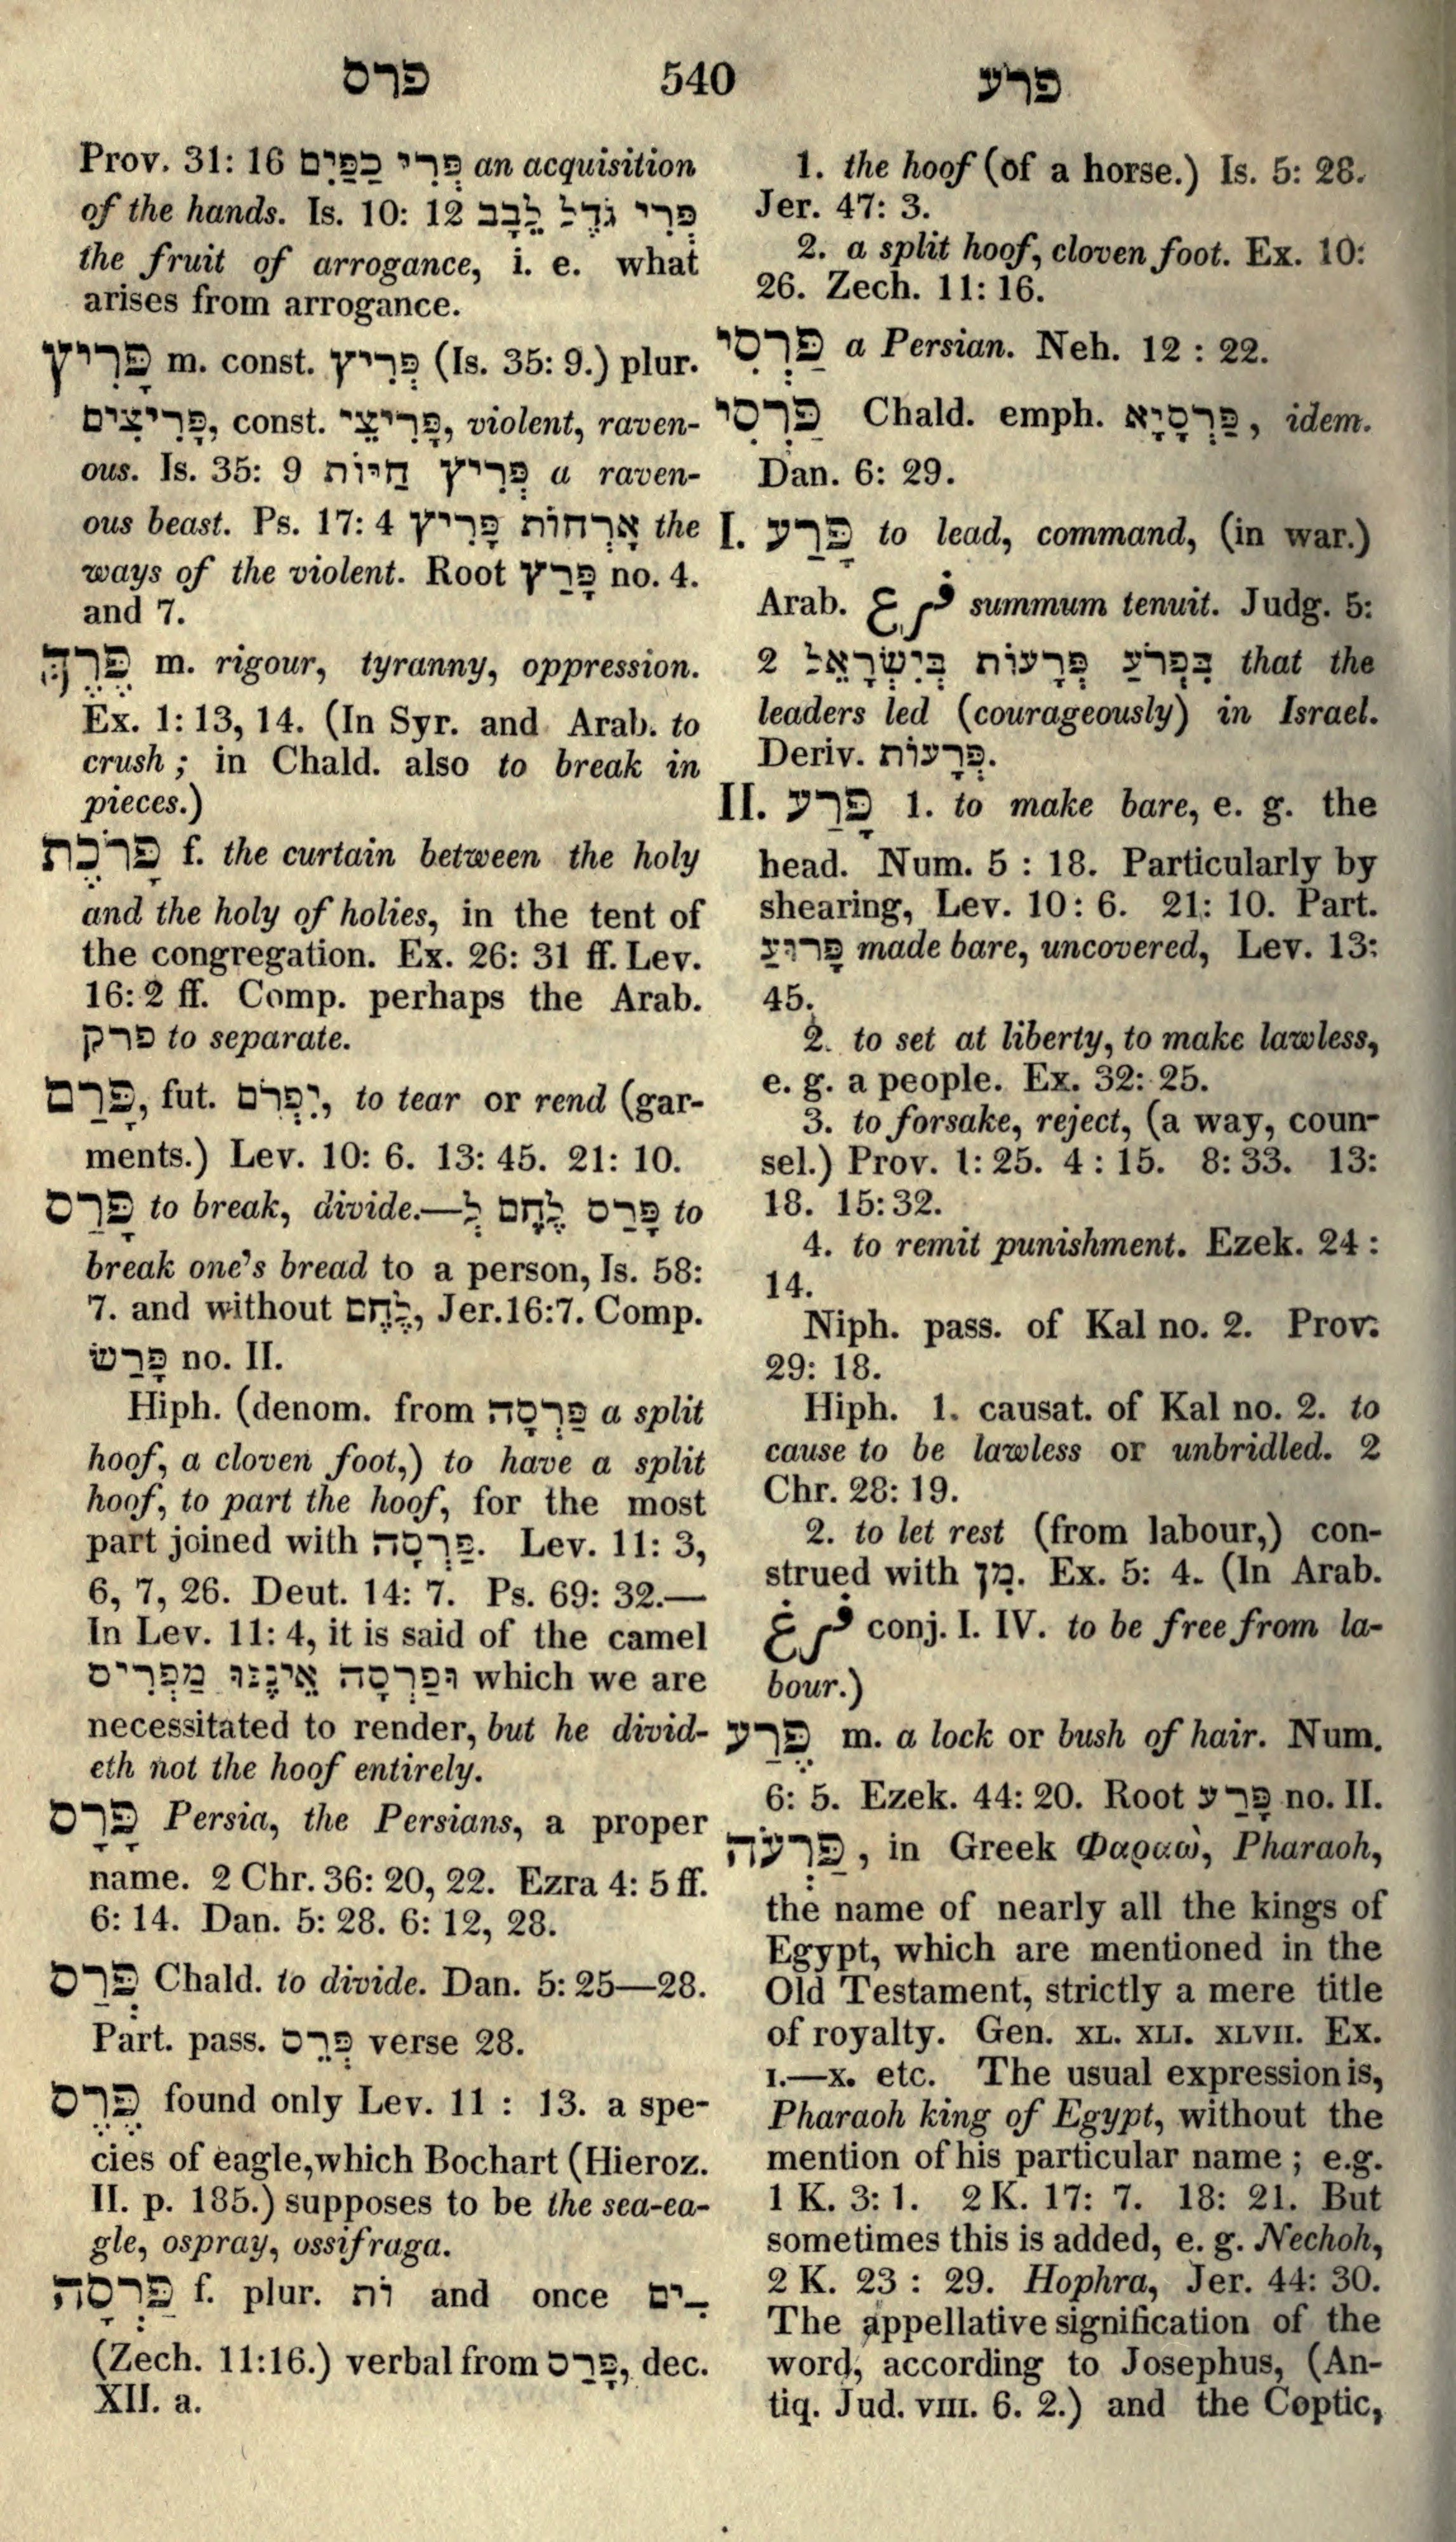 פרס 540 פרע
Prov. 31: 16 פְּרִי כַפַּיִם an acquisition
of the hands. Is. 10: 12 פְּרִי גֹדֶל לֵבָב
the fruit of arrogance, i. e. what
arises from arrogance.
פָּרִיץ m. const. פְּרִיץ (Is. 35: 9.) plur.
פָּרִיצִים, const. פָּרִיצֵי, violent, raven-
ous. Is. 35: 9 פְּרִיץ חַיּוֹת a raven-
ous beast. Ps. 17: 4 אָרְחוֹת פָּרִיץ the
ways of the violent. Root פָּרַץ no. 4.
and 7.
פֶּרֶךְ m. rigour, tyranny, oppression.
Ex. 1: 13, 14. (In Syr. and Arab. to
crush; in Chald. also to break in
pieces.)
פָּרֹכֶת f. the curtain between the holy
and the holy of holies, in the tent of
the congregation. Ex. 26: 31 ff. Lev.
16: 2 ff. Comp. perhaps the Arab.
פרק to separate.
פָּרַם, fut. יִפְרֹם, to tear or rend (gar-
ments.) Lev. 10: 6. 13: 45. 21: 10.
פָּרַס to break, divide.—פָּרַס לֶחֶם לְ to
break one's bread to a person, Is. 58:
7. and without לֶחֶם, Jer. 16:7. Comp.
פָּרַשׂ no. II.
Hiph. (denom. from פַּרְסָה a split
hoof, a cloven foot,) to have a split
hoof, to part the hoof, for the most
part joined with פַּרְסָה. Lev. 11: 3,
6, 7, 26. Deut. 14: 7. Ps. 69: 32.—
In Lev. 11: 4, it is said of the camel
וּפַרְסָה אֵינֶנּוּ מַפְרִיס which we are
necessitated to render, but he divid-
eth not the hoof entirely.
פָּרָס Persia, the Persians, a proper
name. 2 Chr. 36: 20, 22. Ezra 4: 5 ff.
6: 14. Dan. 5: 28. 6: 12, 28.
פְּרַס Chald. to divide. Dan. 5: 25—28.
Part. pass. פְּרֵס verse 28.
פֶּרֶס found only Lev. 11 : 13. a spe-
cies of eagle, which Bochart (Hieroz.
II. p. 185.) supposes to be the sea-ea-
gle, ospray, ossifraga.
פַּרְסָה f. plur. וֹת and once ־ָים
(Zech. 11:16.) verbal from פָּרַס, dec.
XII. a.
1. the hoof (of a horse.) Is. 5: 28.
Jer. 47: 3.
2. a split hoof, cloven foot. Ex. 10:
26. Zech. 11: 16.
פַּרְסִי a Persian. Neh. 12 : 22.
פַּרְסִי Chald. emph. פַּרְסָיָא, idem.
Dan. 6: 29.
I. פָּרַע to lead, command, (in war.)
Arab. فرع summum tenuit. Judg. 5:
2 בִּפְרֹעַ פְּרָעוֹת בְּיִשְׂרָאֵל that the
leaders led (courageously) in Israel.
Deriv. פְּרָעוֹת.
II. פָּרַע 1. to make bare, e. g. the
head. Num. 5 : 18. Particularly by
shearing, Lev. 10: 6. 21: 10. Part.
פָּרוּעַ made bare, uncovered, Lev. 13:
45.
2. to set at liberty, to make lawless,
e. g. a people. Ex. 32: 25.
3. to forsake, reject, (a way, coun-
sel.) Prov. 1: 25. 4 : 15. 8: 33. 13:
18. 15: 32.
4. to remit punishment. Ezek. 24 :
14.
Niph. pass. of Kal no. 2. Prov.
29: 18.
Hiph. 1. causat. of Kal no. 2. to
cause to be lawless or unbridled. 2
Chr. 28: 19.
2. to let rest (from labour,) con-
strued with מִן. Ex. 5: 4. (In Arab.
فرغ conj. I. IV. to be free from la-
bour.)
פֶּרַע m. a lock or bush of hair. Num.
6: 5. Ezek. 44: 20. Root פָּרַע no. II.
פַּרְעֹה, in Greek Φαραώ, Pharaoh,
the name of nearly all the kings of
Egypt, which are mentioned in the
Old Testament, strictly a mere title
of royalty. Gen. XL. XLI. XLVII. Ex.
I.—X. etc. The usual expression is,
Pharaoh king of Egypt, without the
mention of his particular name; e.g.
1 K. 3: 1. 2 K. 17: 7. 18: 21. But
sometimes this is added, e. g. Nechoh,
2 K. 23 : 29. Hophra, Jer. 44: 30.
The appellative signification of the
word, according to Josephus, (An-
tiq. Jud. VIII. 6. 2.) and the Coptic,